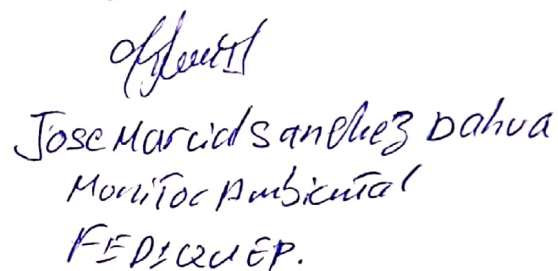 Jose Marcial Sanchez Dahua
Monitor Ambiental
FEDIQUEP.